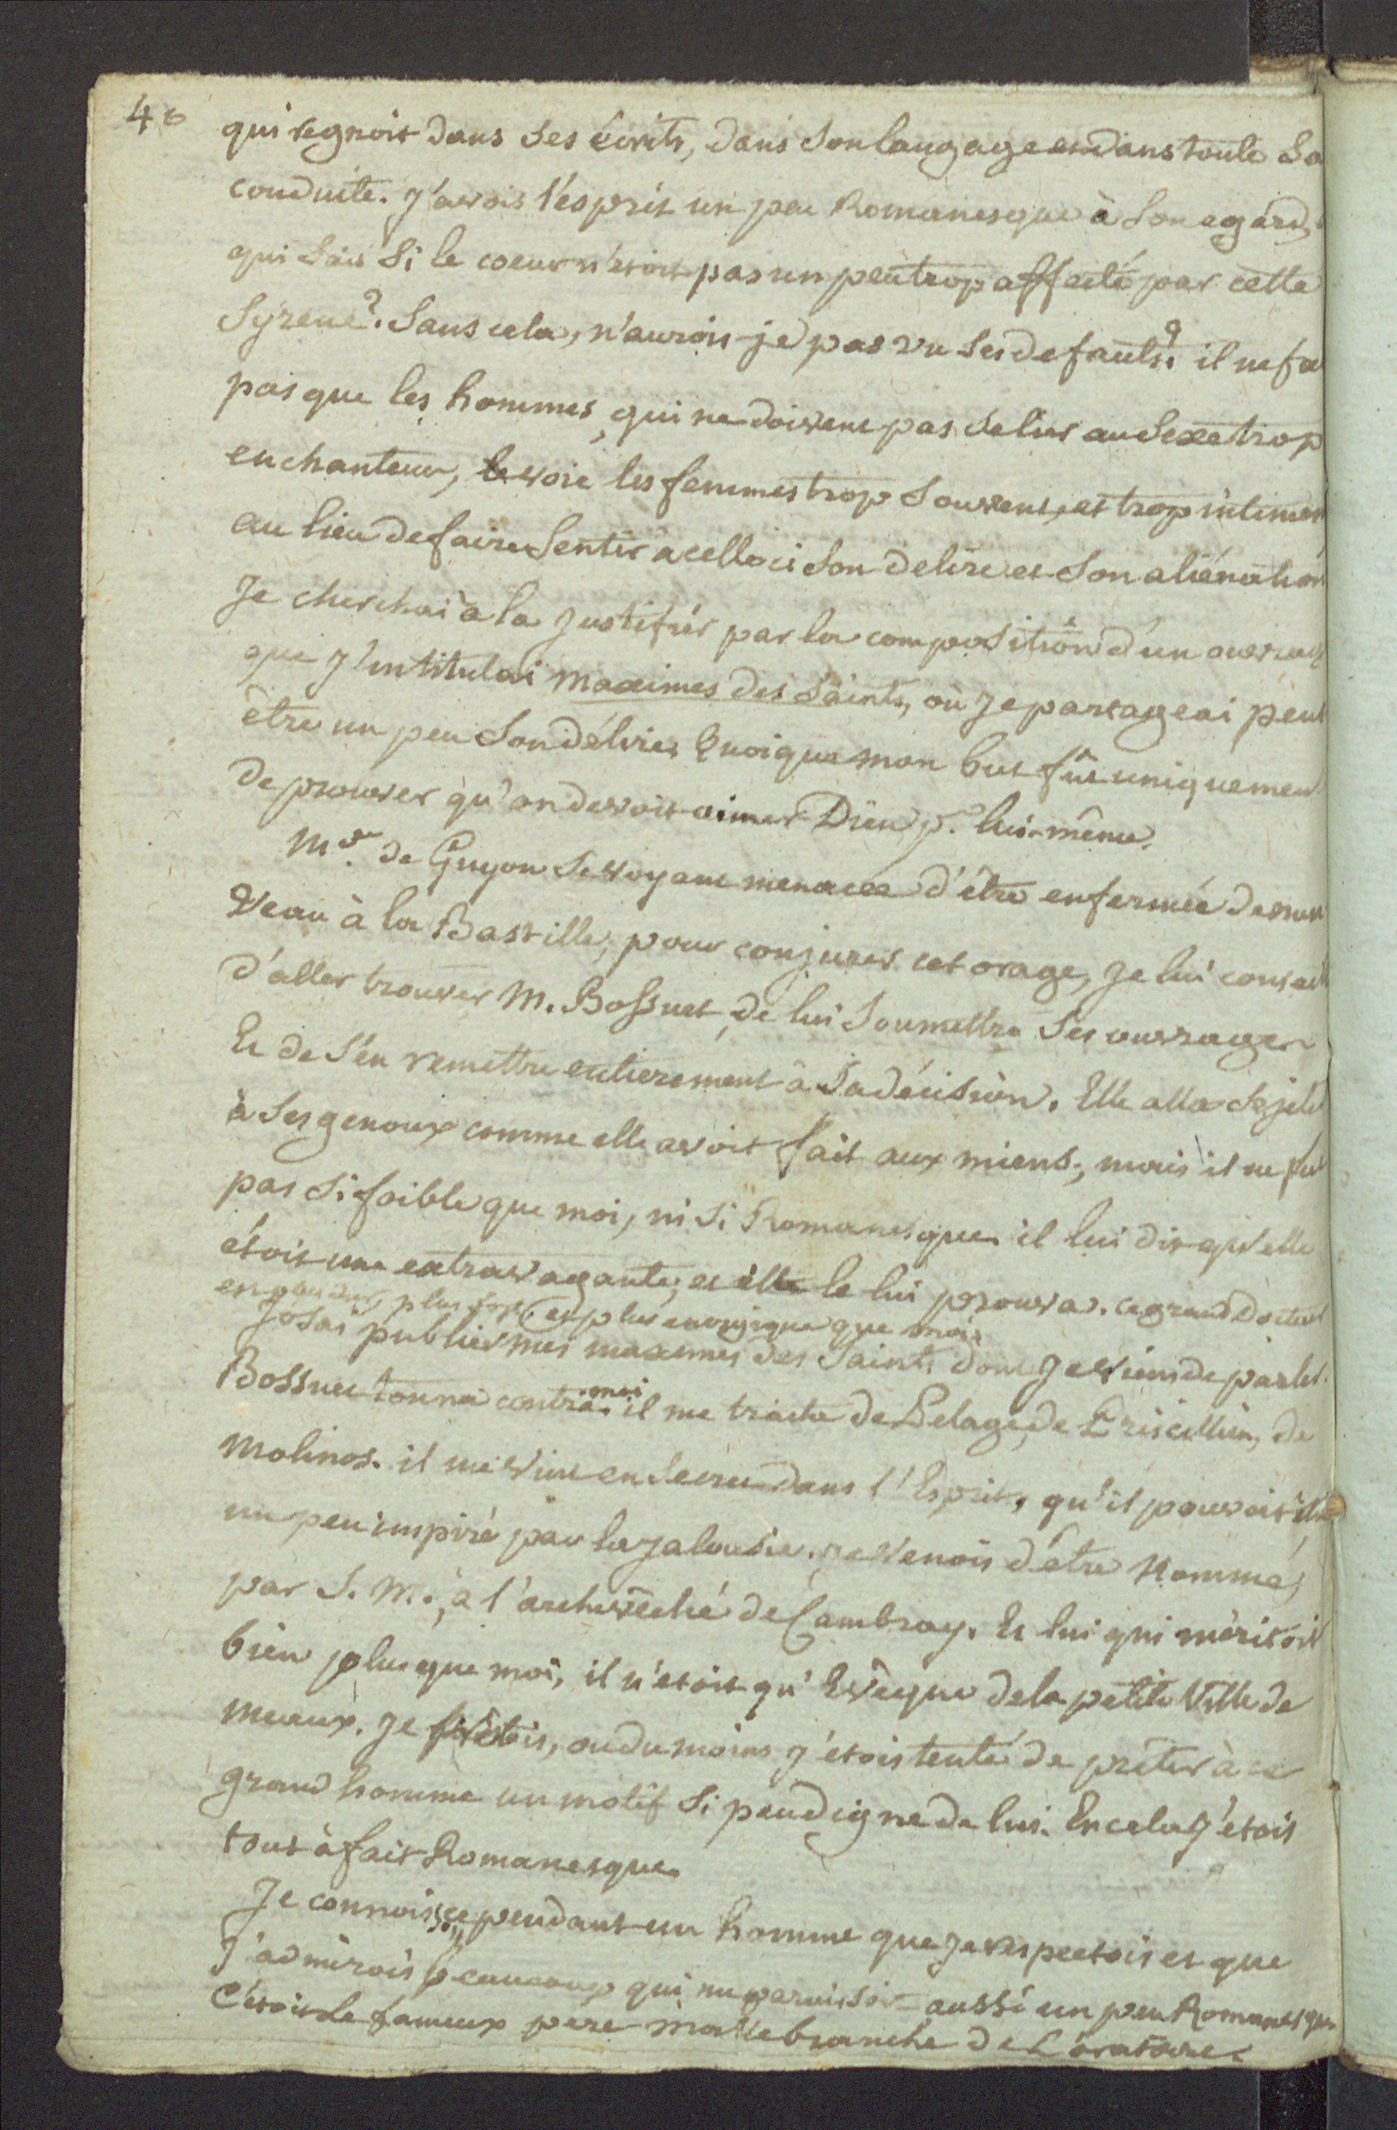 48
qui regnoit dans ses écrits, dans son langage et dans toute sa
conduite. J'avois l'esprit un peu Romanesque à son egard,
qui sais si le coeur n'étoit pas un peu trop affecté par cette
Syrene? Sans cela, n'aurois-je pas vu ses defauts? il ne fa
pas que les hommes, qui ne doivent pas se lier au sexe trop
enchanteur, voie les femmes trop souvent, et trop intimem
au lieu de faire sentir a celle ci son delire et son aliénation
Je cherchai à la justifier par la composition d'un ouvrag
que j'intitulai maximes des saints, où je partageai peut
être un peu son délire, Quoique mon but fût uniquemen
de prouver qu'on devoit aimer Dieu p.r lui-même.
Me. de Guyon se voyant menacée d'être enfermée de nou
veau à la Bastille, pour conjurer cet orage, je lui conseil
d'aller trouver M. Bossuet, de lui soumettre ses ouvrages
Et de s'en remettre entierement à sa décision. Elle alla se jeter
à ses genoux comme elle avoit fait aux miens; mais il ne fu
pas si foible que moi, ni si Romanesque. il lui dit qu'elle
étoit une extravagante, et le lui prouva. ce grand Docteur
plus fort, et plus energique que moi.
J'osai publier mes maximes des Saints dont je viens de parler.
Bossuet tonna contre moi. il me traita de Pelage, de Priscillien, de
Molinos. il me vint en secret dans l'Esprit, qu'il pouvoit être
un peu inspiré par la jalousie. je venois d'être Nommé,
par S. M., à l'archevêché de Cambray. Et lui qui méritoit
bien plus que moi, il n'étoit qu'Evêque de la petite Ville de
meaux. Je prêtois, ou du moins j'étois tenté de prêter à ce
grand homme un motif si peu digne de lui. En cela j'étois
tout à fait Romanesque.
Je connoissois cependant un homme que je respectois et que
J'admirois beaucoup qui me paroissoit aussi un peu Romanesque
C'étoit Le fameux pere mallebranche de L'oratoire.